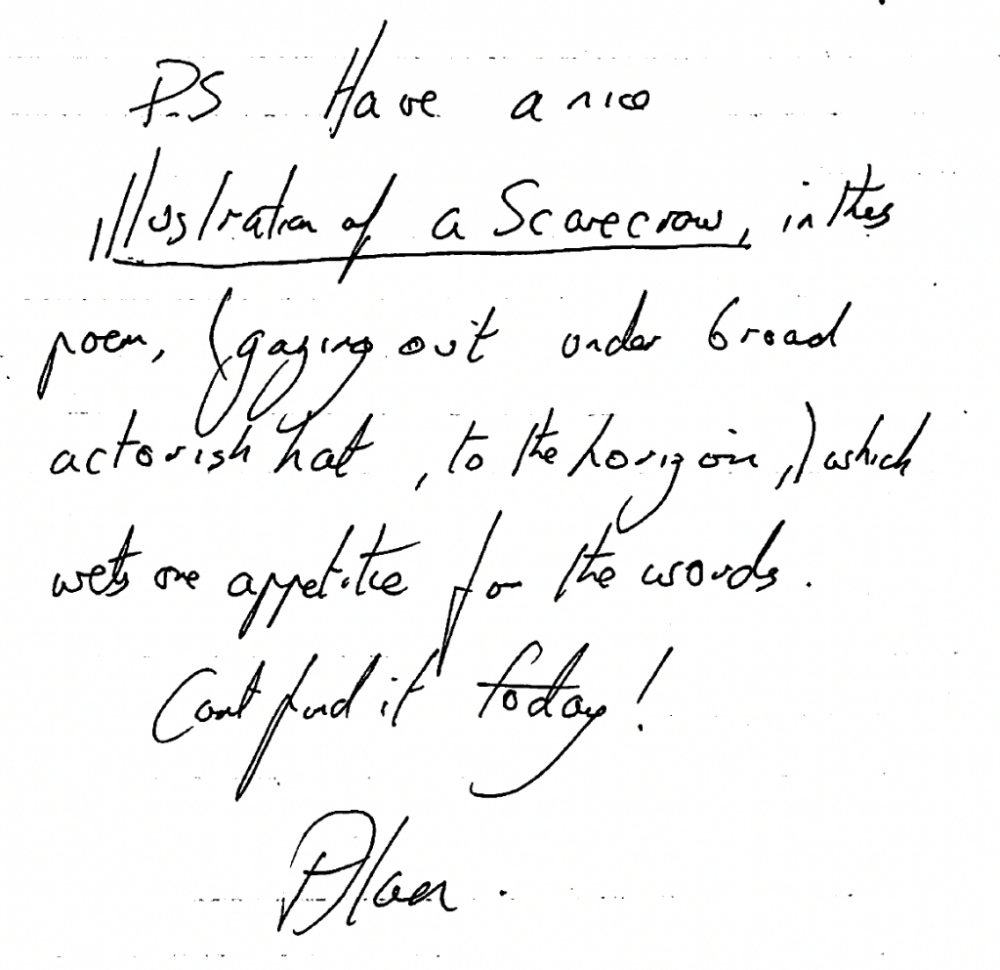 P.S Have a nice
illustration of a Scarecrow, in this
poem, (gazing out under broad
actorish hat, to the horizon,) which
wets one appetite for the words.
Cant find it today!
Alan.